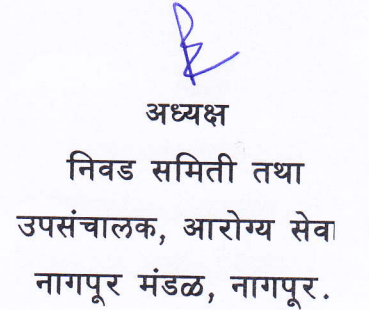 अध्यक्ष
निवड समिती तथा
उपसंचालक, आरोग्य सेवा
नागपूर मंडळ, नागपूर.